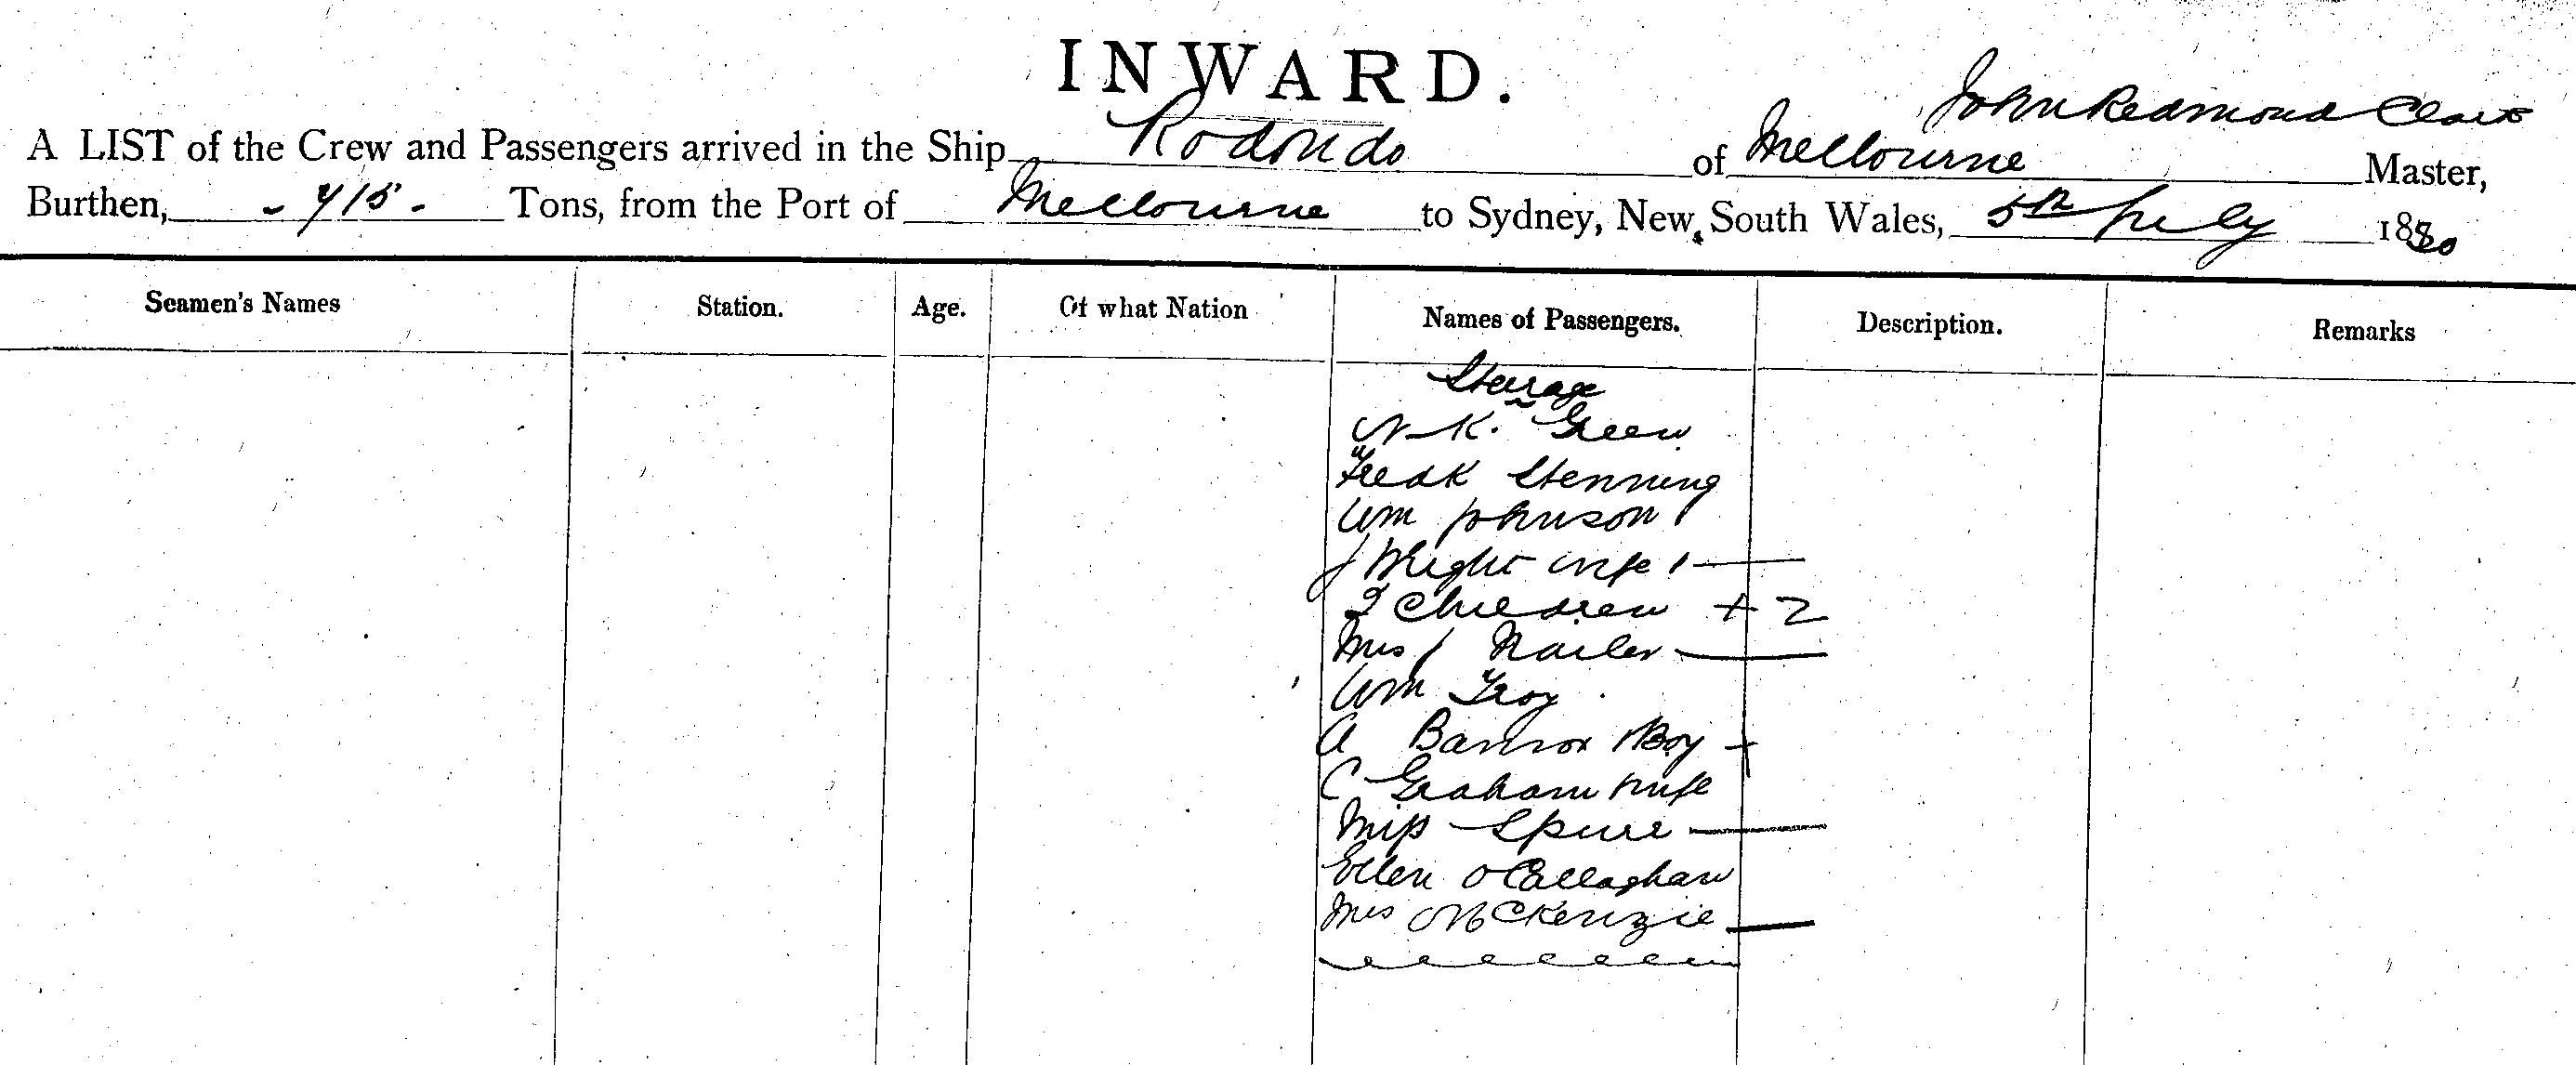 INWARD.
John Redmond Clark
A LIST of the Crew and Passengers arrived in the Ship Rodondo of Melbourne Master,
Burthen, - 715 - Tons, from the Port of Melbourne to Sydney, New South Wales, 5th July 1880
Seamen's Names Station. Age. Of what Nation Names of Passengers. Description. Remarks
Steerage
K. Green
Fredk Stenning
Wm Johnson
J Wright wife 1
2 Children + 2
Mrs J Nailer
Wm Troy
A 1 Boy +
C Graham wife
Miss
Ellen O Callaghan
Mrs McKenzie